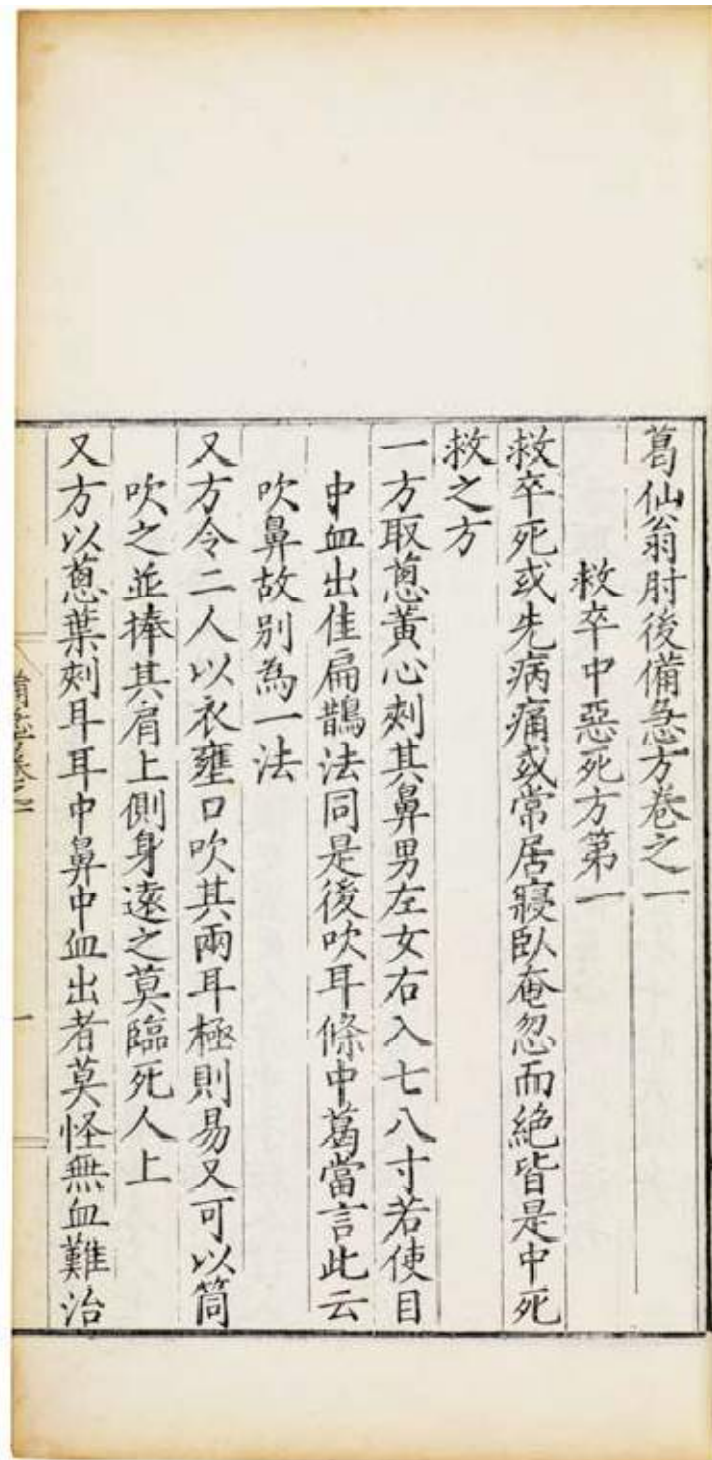 葛仙翁肘後備急方卷之一
救卒中惡死方第一
救卒死或先病痛或常居寢臥奄忽而絶皆是中死
救之方
一方取葱黃心刾其鼻男左女右入七八寸若使目
中血出佳扁鵲法同是後吹耳條中葛當言此云
吹鼻故别為一法
又方令二人以衣壅口吹其兩耳極則易又可以筒
吹之並捧其肩上側身遠之莫臨死人上
又方以葱葉刾耳耳中鼻中血出者莫怪無血難治